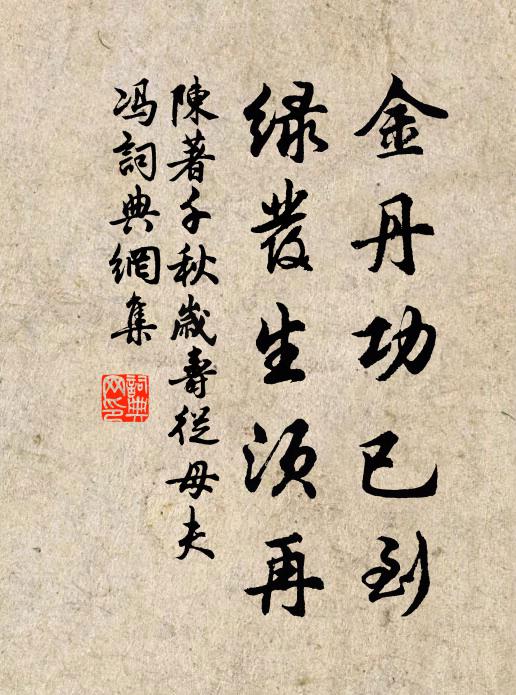 金丹功已到
緑發生須再
陳著千秋歲壽從母夫
馮詞典網集
詞典
网印